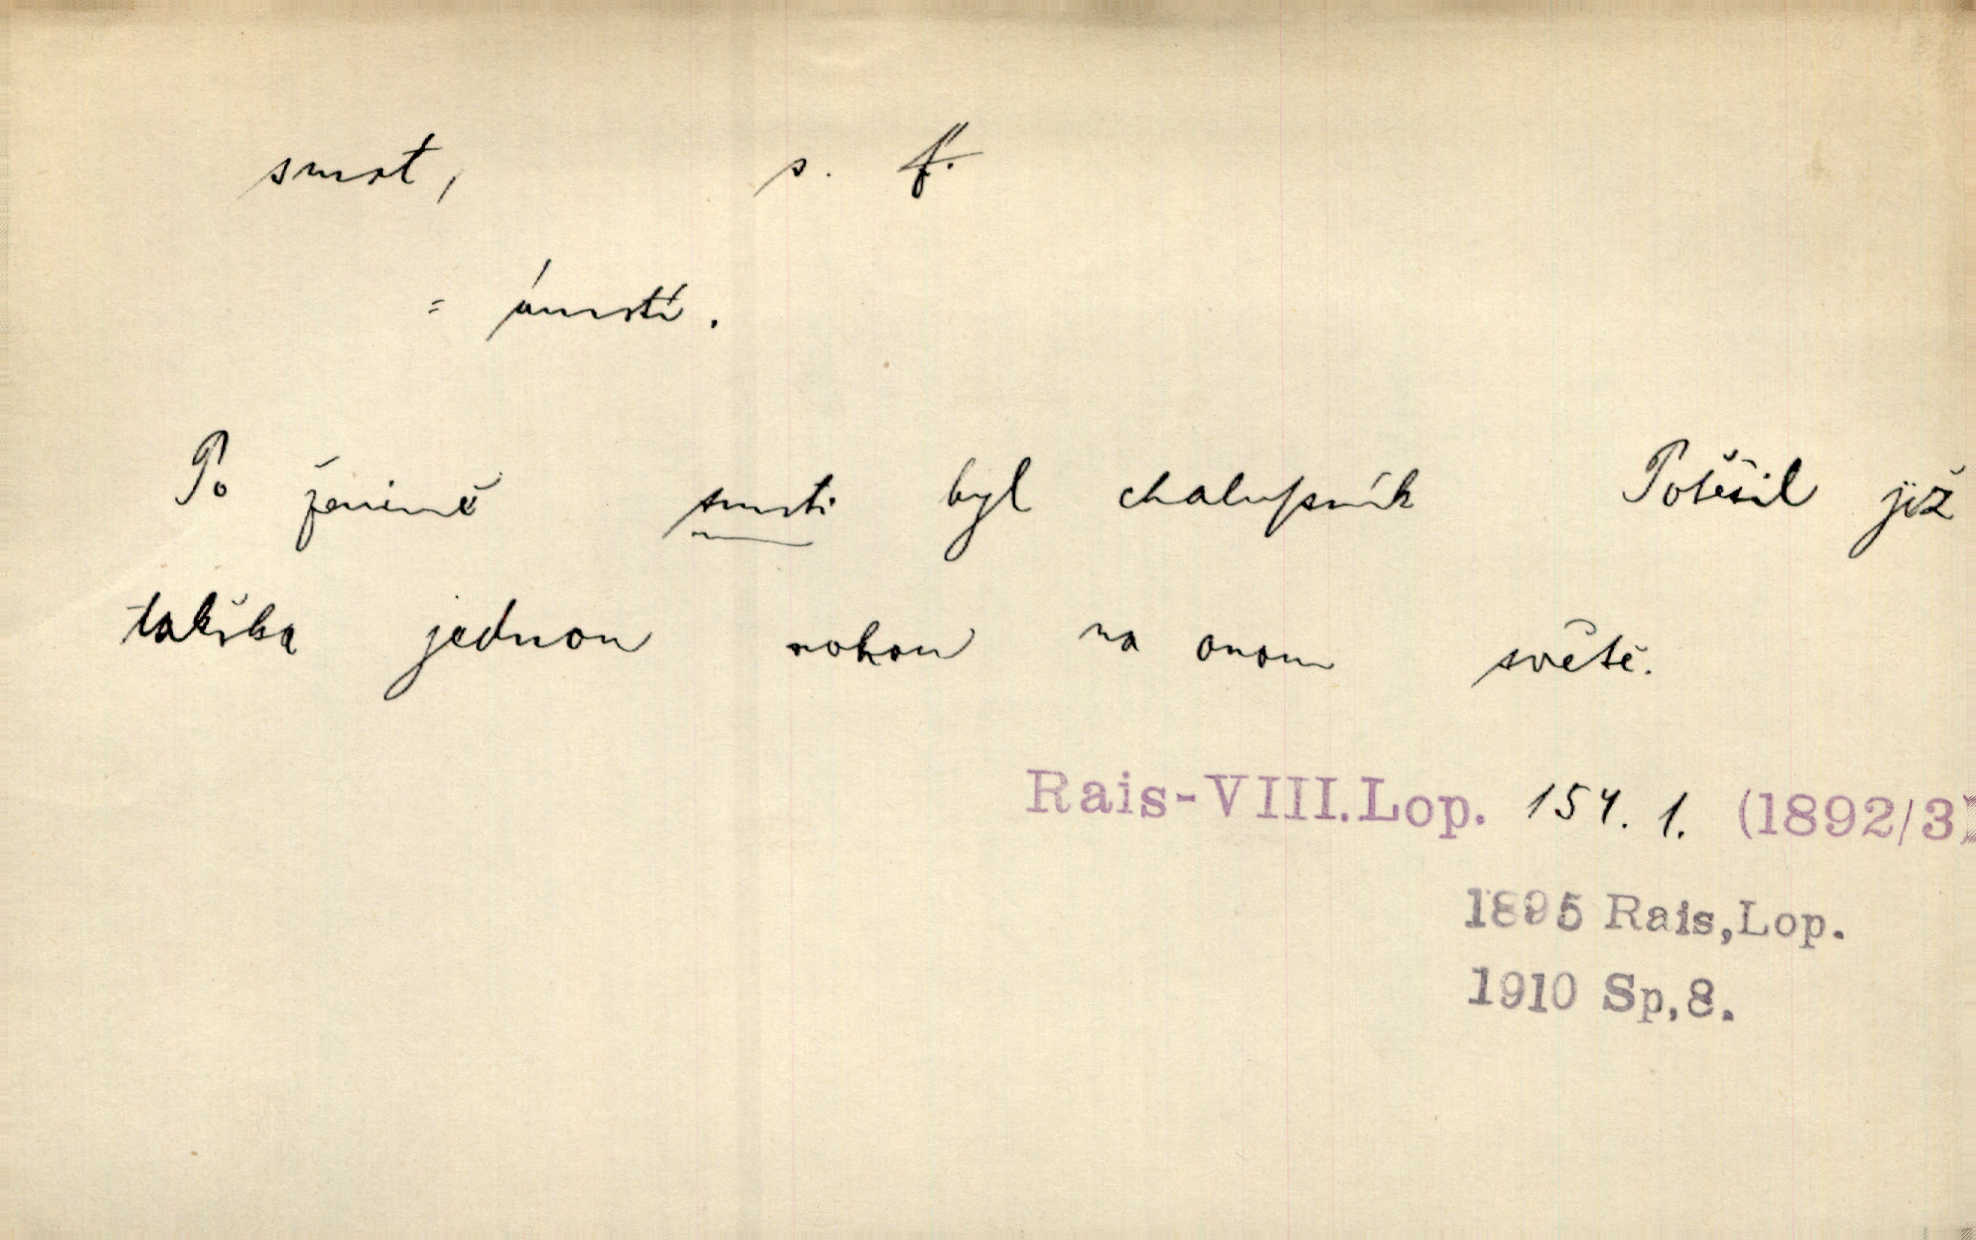 smrt, s. f.
= úmrtí.
Po ženině smrti byl chalupník Potěšil již
takřka jednou nohou na onom světě.
Rais-VIII.Lop. 154. 1. (1892/3)
1895 Rais,Lop.
1910 Sp,8.